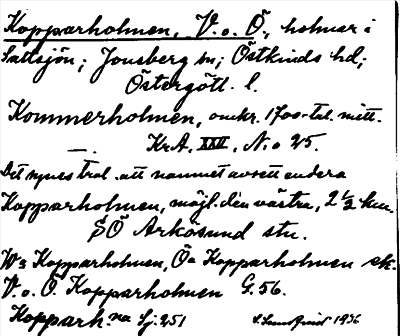 Kopparholmen, V. o. Ö., holmar i
Saltsjön; Jonsberg sn; Östkinds hd;
Östergötl. l.
Kommerholmen, omkr. 1700-tal. mitt.
— . Kr.A. XXII, N:o 25.
Det synes trol. att namnet avsett endera
Kopparholmen, möjl. den västra, 2 1/2 km.
SÖ Arkösund stn.
Wa Kopparholmen, Öa Kopparholmen ek.
V. o. Ö. Kopparholmen G. 56.
Koppark. na Sj. 251 1936